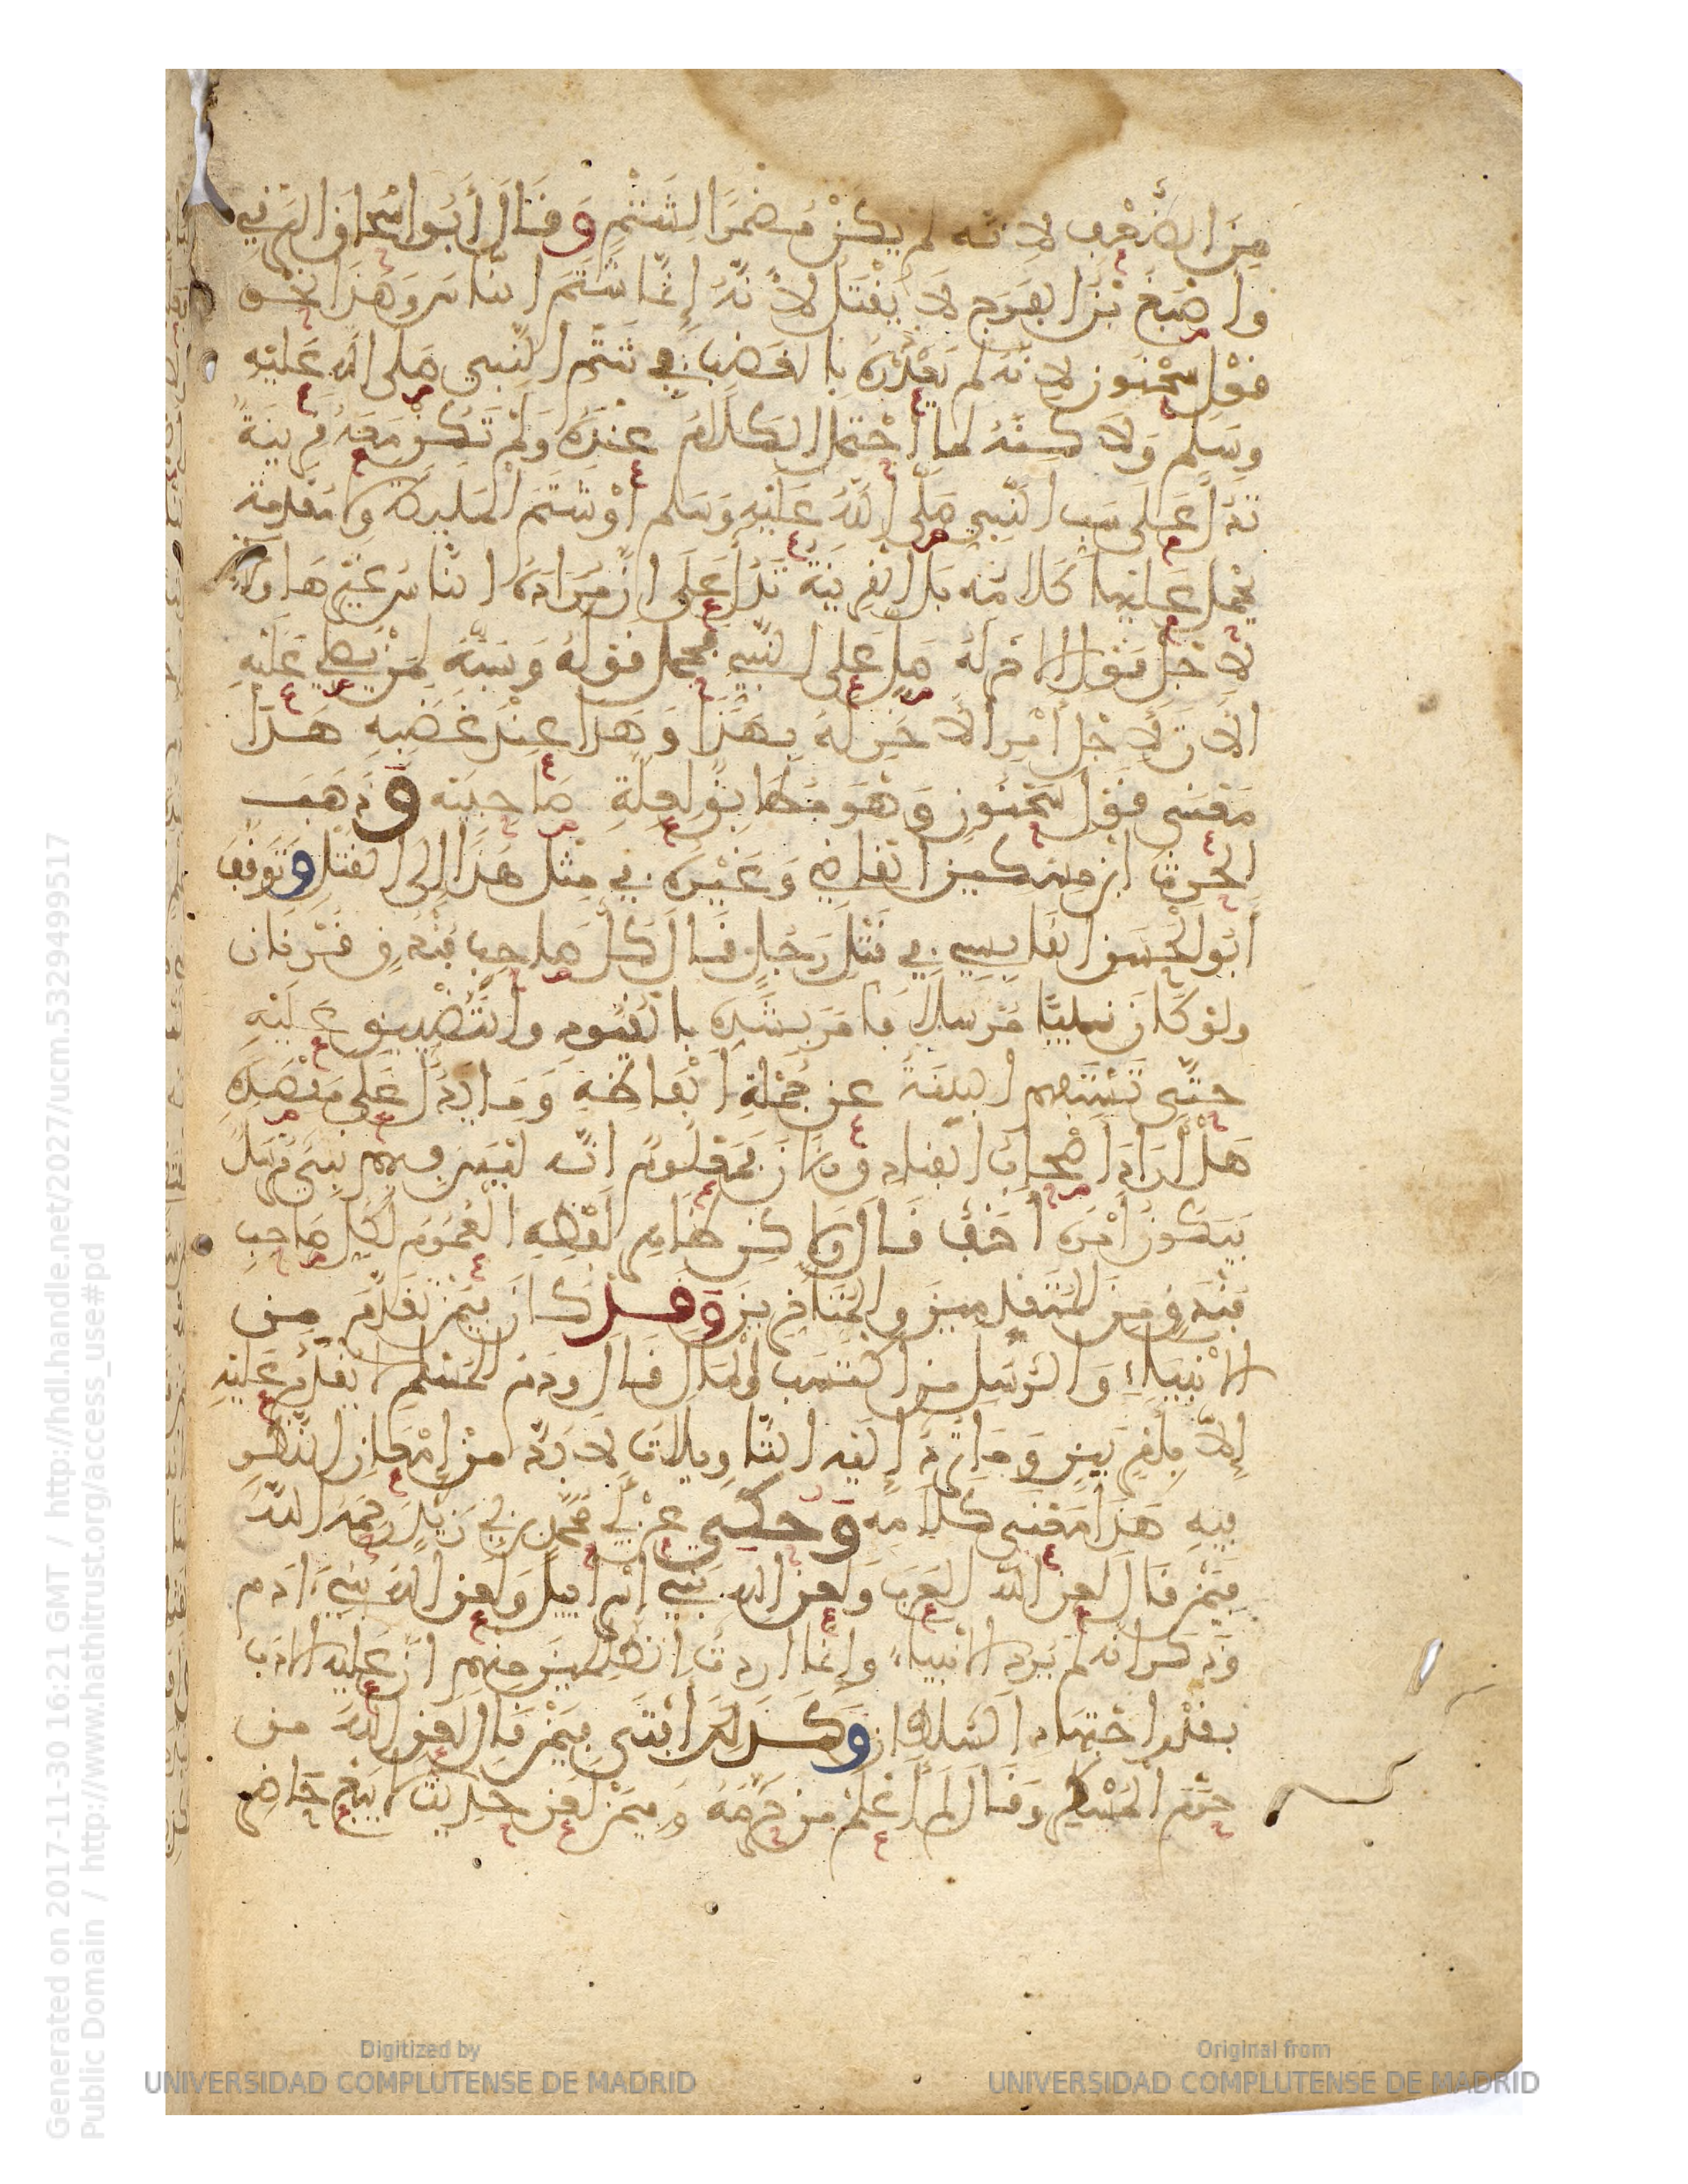 مِنَ الضَّعْفِ لِأَنَّه لم يكنْ مُضمرًا لِلشَّتْمِ وَقَالَ أَبُو اسْحَاقَ البَرقي
وأصْبَغُ بْنُ الفَرَجِ لَا يُقْتَلُ لأَنَّهُ إِنَّمَا شَتَمَ النَّاسَ وَهَذَا نَحْو
قَوْلِ سَحْنُون لِأنَّه لم يَعْذُرْهُ بِالغَضَبِ في شَتْمِ النَّبي صَلى الله عَلَيْهِ
وسَلم وَلَاكنَّهُ لما احْتمَلَ الكَلَامُ عِنْدَهُ وَلَمْ تَكُنْ مَعَهُ قَرِينَةٌ
تَدُل عَلَى سَب النَّبي صَلَّى اللَّهُ عَلَيْهِ وَسَلم أوْ شَتْمَ المَليكة ولا مقَدمة
يحمل عَليها كَلَامُه بَلِ القَرِينَة تَدُل عَلَى انَّ مُرَادَهُ النَّاسُ غَيْر هَاولا
لأَجْلِ قَوْلِ الاخَر لَهُ صَل عَلى النَّبي فحمل قَوْلُهُ وَسَبُّه لِمَنْ يُصَلي عَلَيْهِ
الآنَ لأَجْلِ أَمْر الآخَرِ لَهُ بِهَذَا وَهَذا عِنْدَ غَضَبِهِ هَذَا
مَعْنَى قَوْلِ سَحْنُونٍ وَهُوَ مُطَابِقٌ لِعِلَّةِ صَاحِبَيْه وَذَهَبَ
الحرثُ ابن مِسكين القَاضي وَغَيْرُهُ في مِثْلِ هَذَا إلى القَتْلِ وَتَوَقَّفَ
أَبُو الحَسَن القَابِسي في قَتْلِ رَجُلٍ قَالَ كُلُّ صَاحِبِ فُنْدُقٍ قَرْنَان
ولوْ كَانَ نَبيًّا مُرْسَلًا فَأَمَرَ بِشَدِّهِ بالقُيُودِ والتَّضْييقِ عَلَيْهِ
حتَّى تُسْتَفهم البينَةُ عن جُمْلَةِ ألْفَاظِهِ وَمَا يَدُل عَلَى مَقْصَدِهِ
هَلْ أَرَادَ أَصْحَابَ الفنَادِق الان فَمَعْلُومٌ انَّه لَيْسَ فيهم نَبيٌّ مُرْسَلٌ
فَيَكُونُ أَمْرُهُ أَخَفُّ قَالَ ولا كن ظَاهِرُ لَفْظِهِ العُمُومُ لِكُلِّ صَاحِبِ
فُنْدُقٍ مِنَ المُتَقَدِّمِينَ والمُتَأَخِّرِينَ وَقَدْ كَانَ فِيمَنْ تَقَدَّمَ مِن
الأنْبِيَاءِ وَالرُّسُلِ مَن اكْتَسَبَ المَالَ قَالَ وَدَمُ المُسْلِمِ لا يُقْدَمُ عَلَيْهِ
إلاَّ بِأَمْرٍ بَيِّنٍ وَمَا تُرَدُّ إِلَيْهِ التَّأويلاتُ لا بُدَّ مِنْ إِمْعَانِ النَّظَرِ
فِيهِ هَذَا مَعْنَى كَلَامِه وَحُكِيَ عَنْ أَبي مُحَمَّدِ بن أَبي زَيْدٍ رَحِمَهُ اللَّهُ
فِيمَنْ قَالَ لَعَنَ اللَّهُ العَرَبَ وَلَعَنَ اللهُ بَنِي إسْرَاءيلَ وَلَعَنَ اللَّهُ بَنِي ءَادَم
وَذكر انه لم يُرِد الانْبياء وَإِنَّمَا اردتُ الظَّالِمِينَ مِنهم انَّ عَلَيْهِ الادَبَ
بقَدْر اجْتِهَادِ السُّلْطَان وَكَذَلِكَ أَفْتَى فِيمَنْ قَالَ لَعَنَ اللَّهُ من
حَرَّمَ المُسْكِرَ وَقَالَ لَمْ أَعْلَمْ مَن حَرَّمَهُ وَفِيمَنْ لَعَنَ حَدِيثَ لا يَبِعْ حَاضِرٌ
Generated on 2017-11-30 16:21 GMT / http://hdl.handle.net/2027/ucm.5329499517
Public Domain / http://www.hathitrust.org/access_use#pd
Digitized by
UNIVERSIDAD COMPLUTENSE DE MADRID
Original from
UNIVERSIDAD COMPLUTENSE DE MADRID